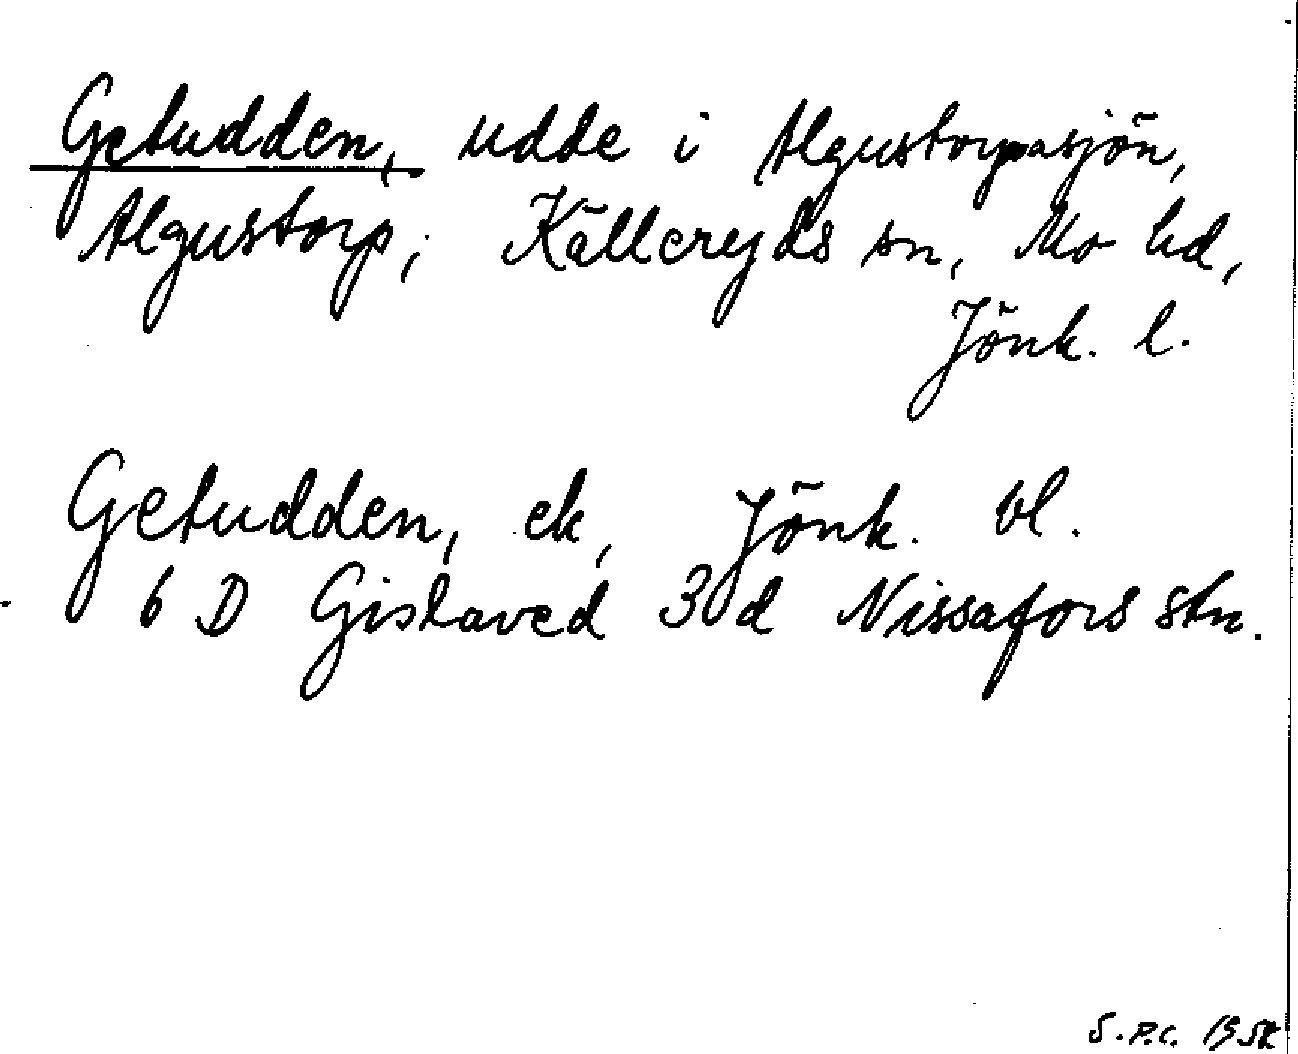 Getudden, udde i Algustorpasjön,
Algustorp, Källeryds sn, Mo hd,
Jönk. l.
Getudden, ek, Jönk. bl.
6 D Gislaved 3 d Nissafors stn.
S.P.C.